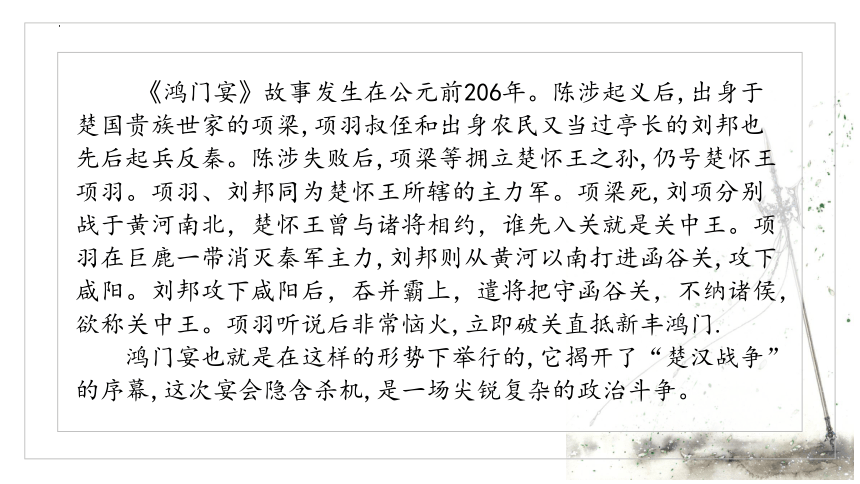 《鸿门宴》故事发生在公元前206年。陈涉起义后,出身于
楚国贵族世家的项梁,项羽叔侄和出身农民又当过亭长的刘邦也
先后起兵反秦。陈涉失败后,项梁等拥立楚怀王之孙,仍号楚怀王
项羽。项羽、刘邦同为楚怀王所辖的主力军。项梁死,刘项分别
战于黄河南北，楚怀王曾与诸将相约，谁先入关就是关中王。项
羽在巨鹿一带消灭秦军主力,刘邦则从黄河以南打进函谷关,攻下
咸阳。刘邦攻下咸阳后，吞并霸上，遣将把守函谷关，不纳诸侯，
欲称关中王。项羽听说后非常恼火,立即破关直抵新丰鸿门.
鸿门宴也就是在这样的形势下举行的,它揭开了“楚汉战争”
的序幕,这次宴会隐含杀机,是一场尖锐复杂的政治斗争。